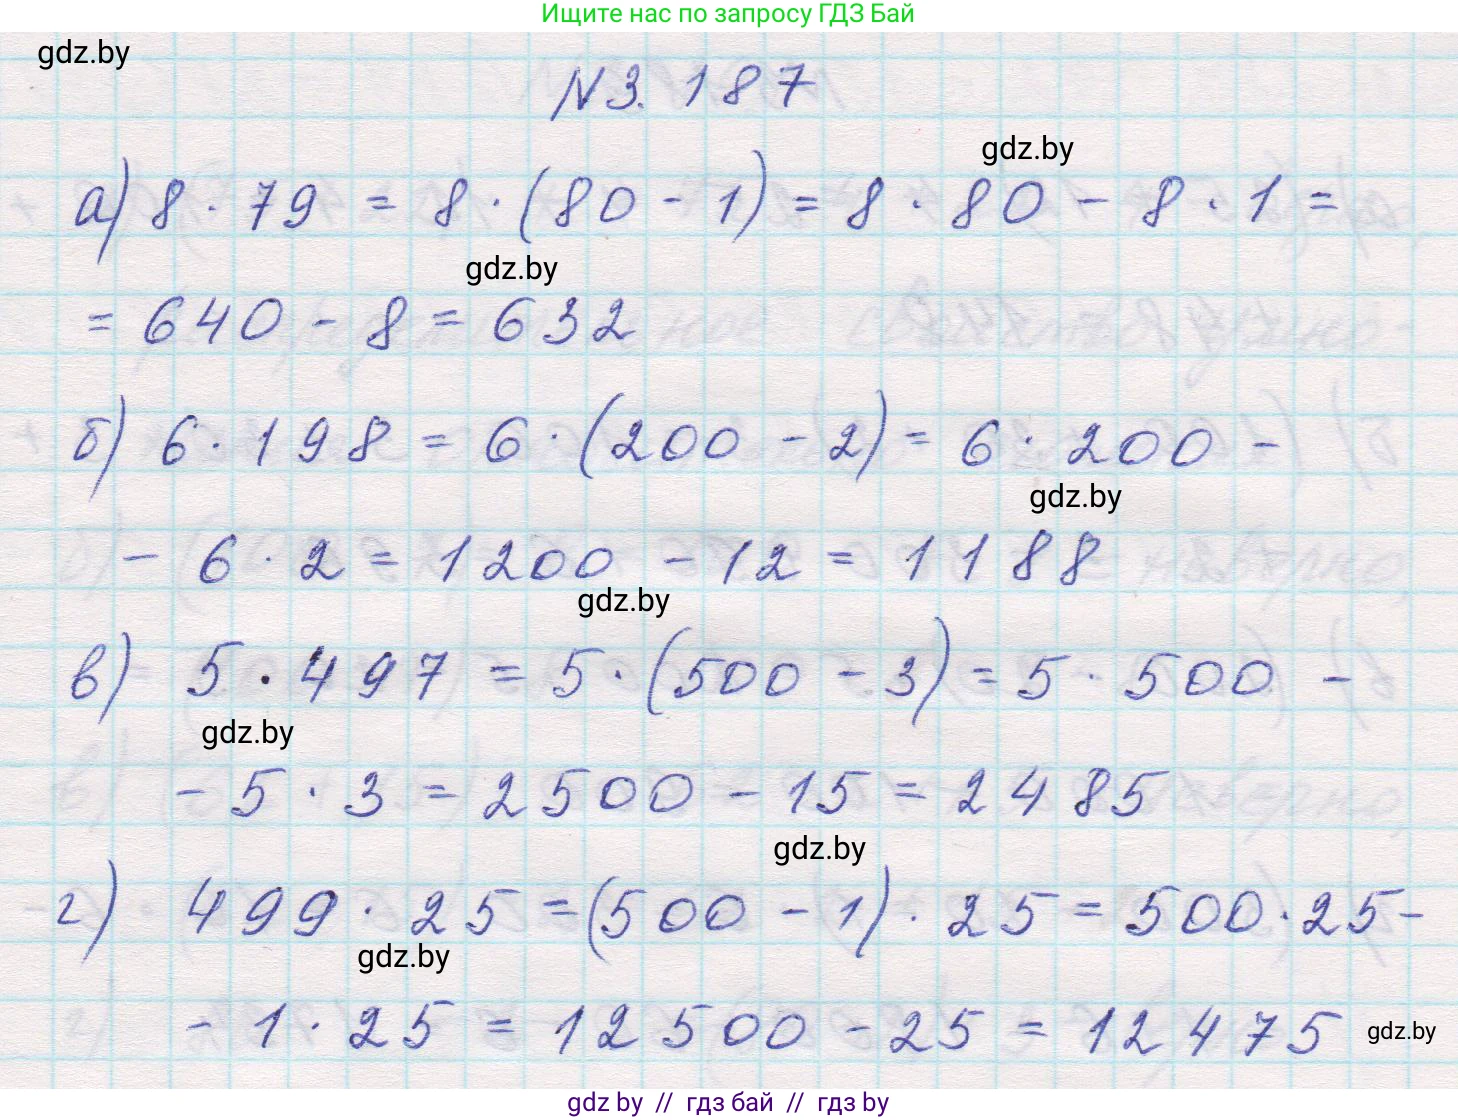 Ищите нас по запросу ГДЗ Бай
gdz.by
N3.187
gdz.by
а) 8 · 79 = 8 · (80 - 1) = 8 · 80 - 8 · 1 =
gdz.by
= 640 - 8 = 632
б) 6 · 198 = 6 · (200 - 2) = 6 · 200 -
gdz.by
- 6 · 2 = 1200 - 12 = 1188
gdz.by
в) 5 · 497 = 5 · (500 - 3) = 5 · 500 -
gdz.by
- 5 · 3 = 2500 - 15 = 2485
gdz.by
г) 499 · 25 = (500 - 1) · 25 = 500 · 25 -
gdz.by
- 1 · 25 = 12500 - 25 = 12475
gdz.by
gdz.by // гдз бай // гдз by